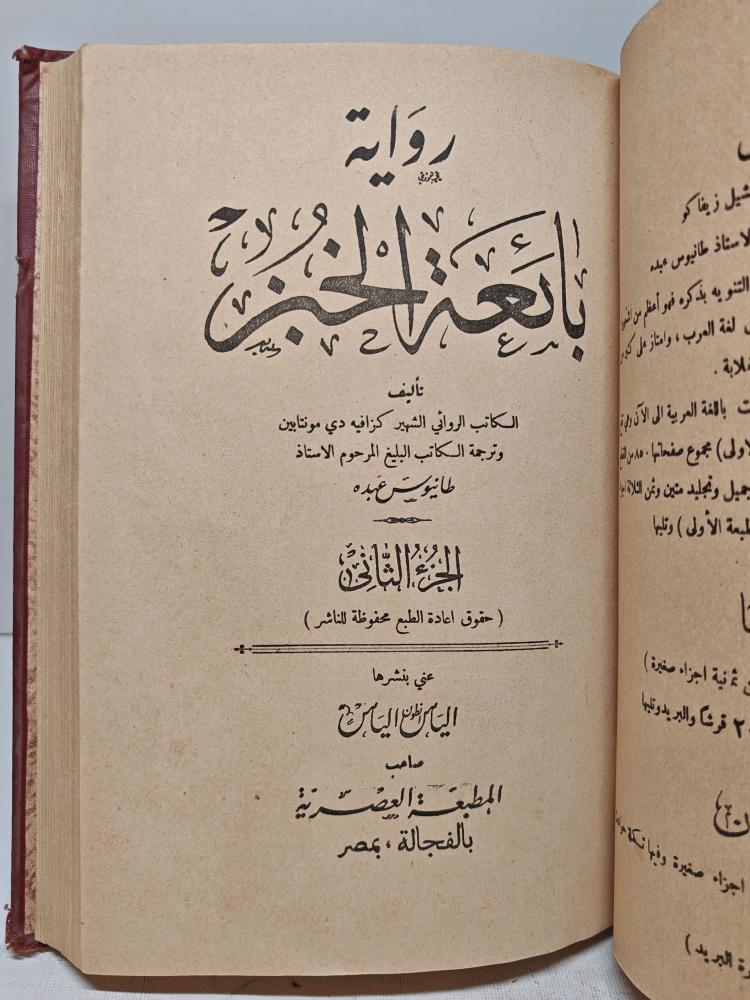 رواية
بائعة الخبز
تأليف
الكاتب الروائي الشهير كزافيه دي مونتابين
وترجمة الكاتب البليغ المرحوم الاستاذ
طانيوس عبده
الجزء الثاني
( حقوق اعادة الطبع محفوظة للناشر )
عني بنشرها
الياس انطون الياس
صاحب
المطبعة العصرية
بالفجالة ، بمصر
زيفاكو
الاستاذ طانيوس عبده
التنويه بذكره فهو أعظم من
لغة العرب ، وامتاز على
باللغة العربية الى الآن
مجموع صفحاتها ٨٥٠ من
وتجليد متين وثمن الثلاثة
الأولى ) وتليها
اجزاء صغيرة )
قرشاً والبريد وتليها
اجزاء صغيرة وفيها تكملة
البريد )